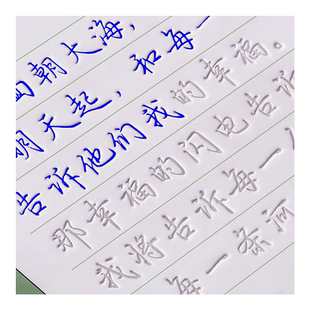 面朝大海,
明天起,和每一
告诉他们我的幸福。
那幸福的闪电告诉
我将告诉每一
每一条河